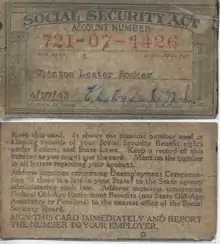 SOCIAL SECURITY ACT
ACCOUNT NUMBER
721-07-4426
Clinton Lester
Keep this card. It shows the account number used in
keeping records of your Social Security Benefit rights
under Federal and State Laws. Keep a record of this
number as you might lose the card. Mention the number
in all letters regarding your account.
Address inquiries concerning Unemployment Compensa-
tion (if there is a law in your State) to the State agency
administering such law. Address inquiries concerning
Federal Old-Age Retirement Benefits (and State Old-Age
Assistance or Pensions) to the nearest office of the Social
Security Board.
SIGN THIS CARD IMMEDIATELY AND REPORT
THE NUMBER TO YOUR EMPLOYER.